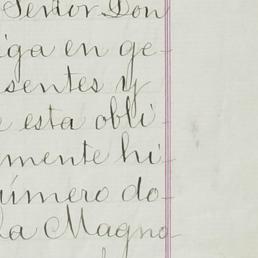 Señor Don
iga en ge-
sentes y
e esta obli-
mente hi-
número do-
la Magno-